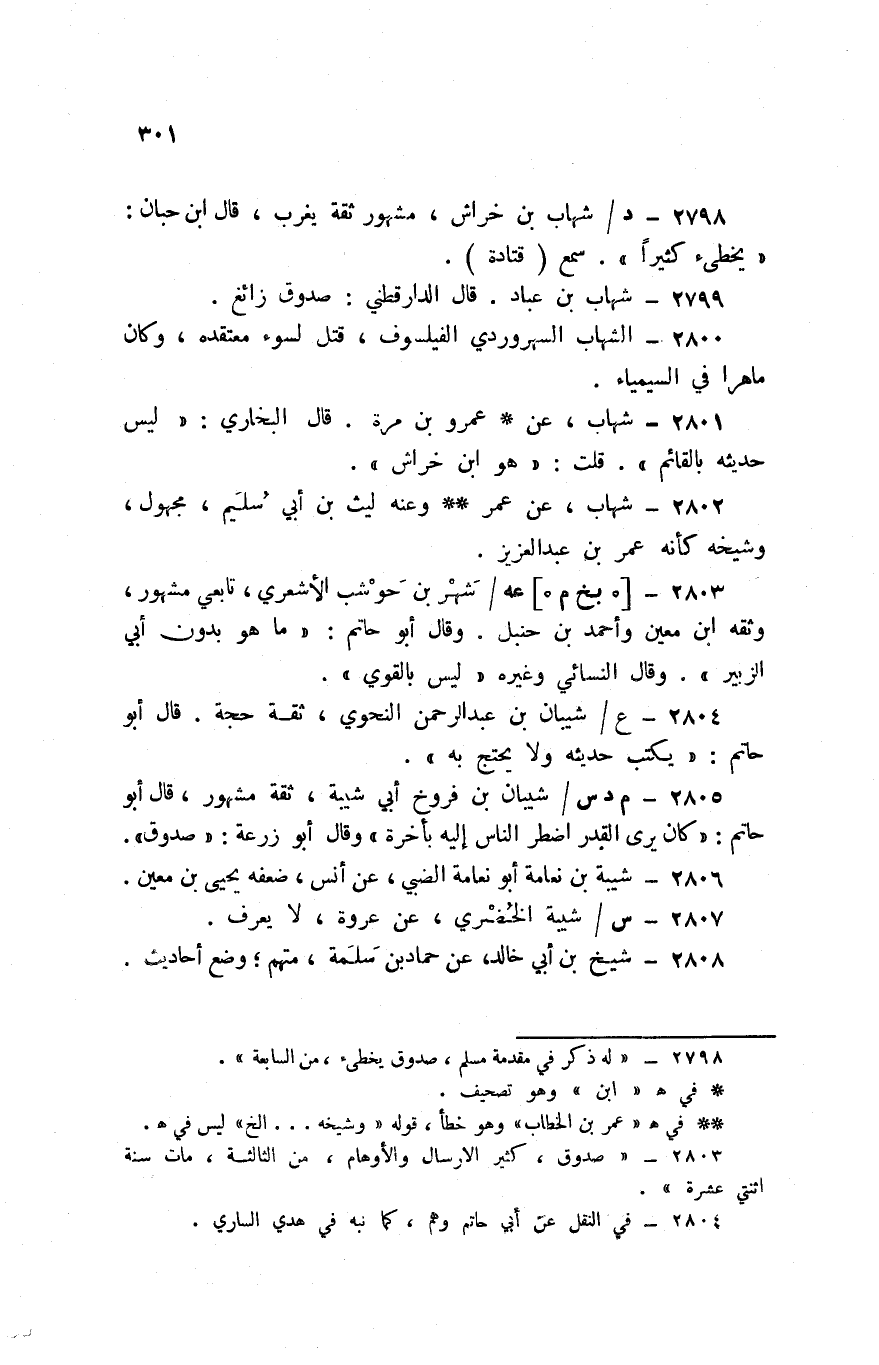 ٣٠١
٢٧٩٨ – د / شهاب بن خراش ، مشهور ثقة يغرب ، قال ابن حبان :
« يخطىء كثيراً » . سمع ( قتادة ) .
٢٧٩٩ – شهاب بن عباد . قال الدارقطني : صدوق زائغ .
٢٨٠٠ – الشهاب السهروردي الفيلسوف ، قتل لسوء معتقده ، وكان
ماهرا في السيمياء .
٢٨٠١ – شهاب ، عن * عمرو بن مرة . قال البخاري : « ليس
حديثه بالقائم » . قلت : « هو ابن خراش » .
٢٨٠٢ – شهاب ، عن عمر ** وعنه ليث بن أبي سُلَيم ، مجهول ،
وشيخه كأنه عمر بن عبدالعزيز .
٢٨٠٣ – [ ه بخ م ه ] عه / شَهْر بن حَوْشب الأشعري ، تابعي مشهور ،
وثقه ابن معين وأحمد بن حنبل . وقال أبو حاتم : « ما هو بدون أبي
الزبير » . وقال النسائي وغيره « ليس بالقوي » .
٢٨٠٤ – ع / شيبان بن عبدالرحمن النحوي ، ثقة حجة . قال أبو
حاتم : « يكتب حديثه ولا يحتج به » .
٢٨٠٥ – م د س / شيبان بن فروخ أبي شيبة ، ثقة مشهور ، قال أبو
حاتم : « كان يرى القدر اضطر الناس إليه بأخرة » وقال أبو زرعة : « صدوق » .
٢٨٠٦ – شيبة بن نعامة أبو نعامة الضبي ، عن أنس ، ضعفه يحيى بن معين .
٢٨٠٧ – س / شيبة الخُضْري ، عن عروة ، لا يعرف .
٢٨٠٨ – شيخ بن أبي خالد، عن حمادبن سَلَمة ، متهم ؛ وضع أحاديث .
٢٧٩٨ – « له ذكر في مقدمة مسلم ، صدوق يخطىء ، من السابعة » .
* في ه « ابن » وهو تصحيف .
** في ه « عمر بن الخطاب» وهو خطأ ، قوله « وشيخه . . . الخ» ليس في ه .
٢٨٠٣ – « صدوق ، كثير الارسال والأوهام ، من الثالثة ، مات سنة
اثنتي عشرة » .
٢٨٠٤ – في النقل عن أبي حاتم وهم ، كما نبه في هدي الساري .